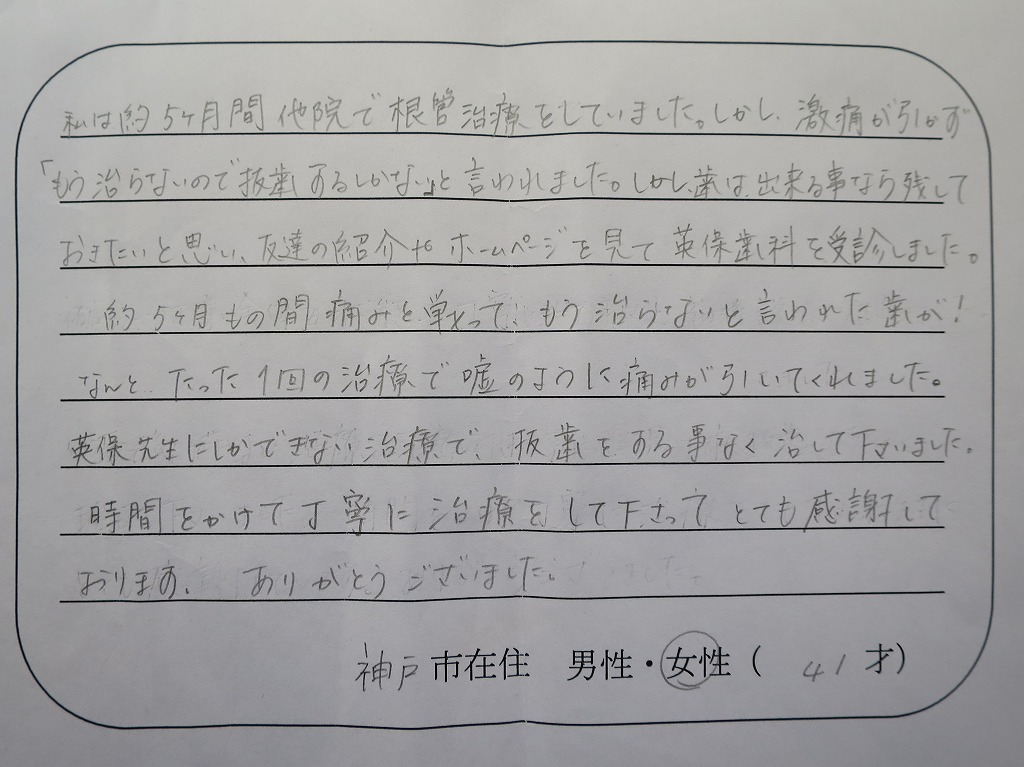 私は約5ヶ月間他院で根管治療をしていました。しかし、激痛が引かず
「もう治らないので抜歯するしかない」と言われました。しかし、歯は、出来る事なら残して
おきたいと思い、友達の紹介やホームページを見て英保歯科を受診しました。
約5ヶ月もの間痛みと単って、もう治らないと言われた歯が!
なんと、たった1回の治療で嘘のように痛みが引いてくれました。
英保先生にしかできない治療で、抜歯をする事なく治して下さいました。
時間をかけて丁寧に治療をして下さって とても感謝して
おります。 ありがとうございました。
神戸市在住 男性・女性( 41才)